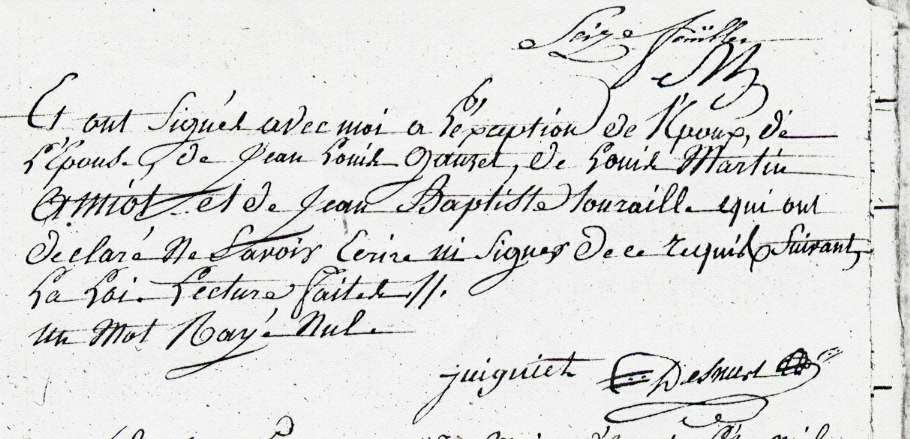 Seize feuillet
Et ont Signés avec moi a l'exception de l'Epoux, de
L'épouse, de Jean Louis Gauzet, de Louis Martin
Amiot et de Jean Baptiste touraille qui ont
declaré ne Savoir Ecrire ni signer de ce requis Suivant
La Loi. Lecture faites //.
un mot Rayé Nul.
juigniet Desnues